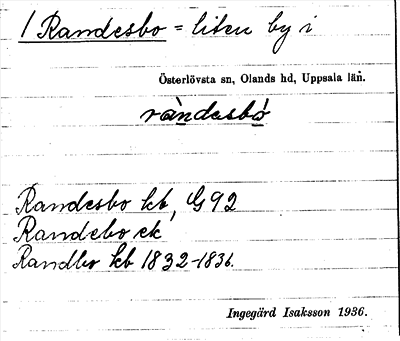 1 Randesbo = liten by i
Österlövsta sn, Olands hd, Uppsala län.
ràndesbó
Randesbo kb, G 92
Randebo ek
Randbo kb 1832-1836.
Ingegärd Isaksson 1936.